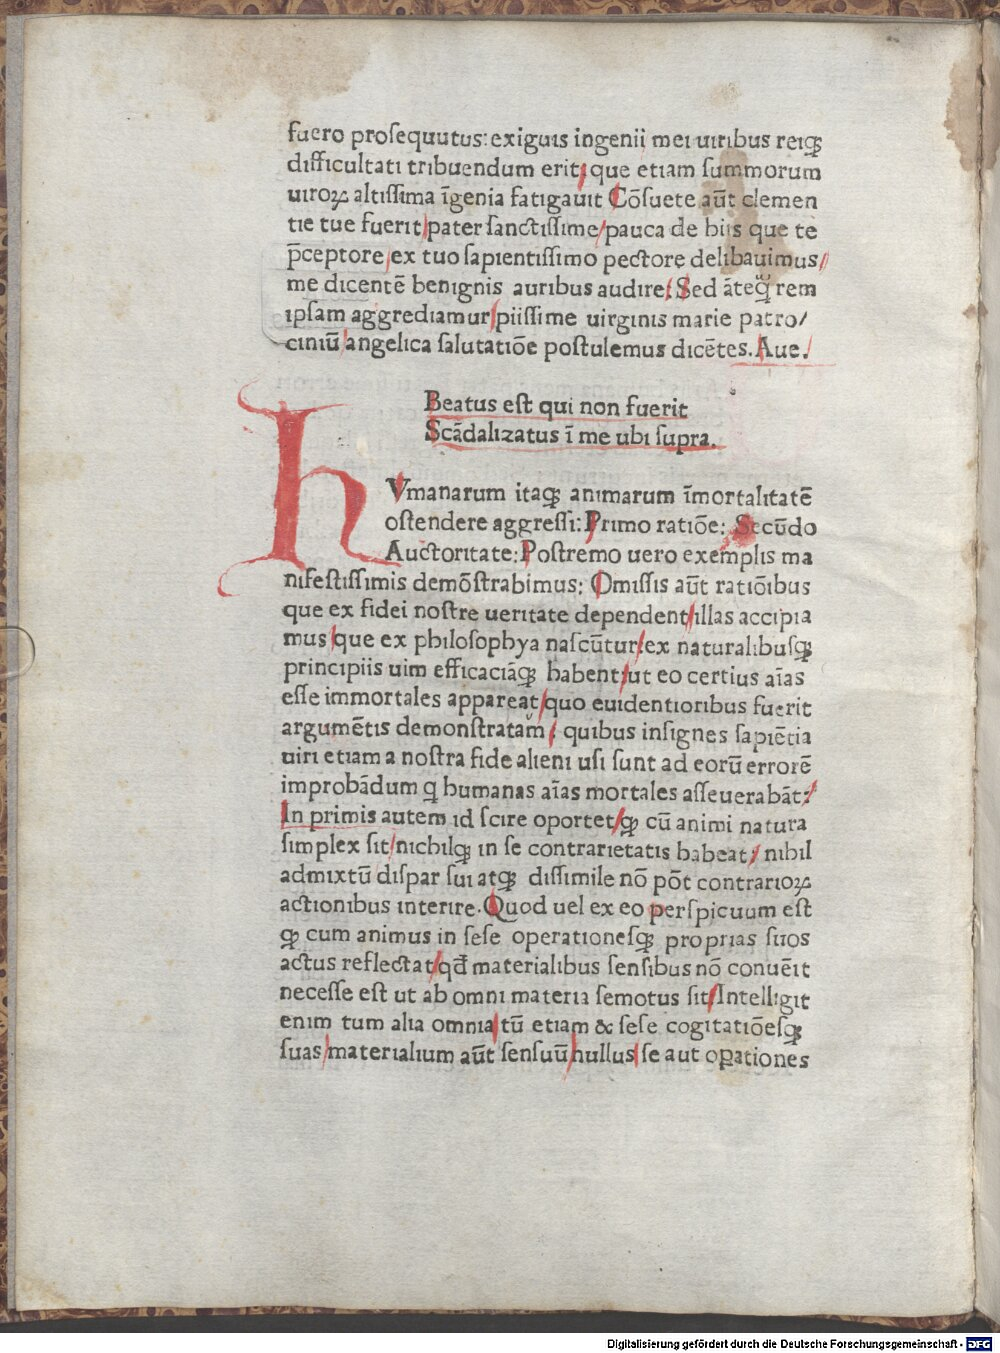 fuero proſequutus: exiguis ingenii mei uiribus reiqꝫ
difficultati tribuendum erit: que etiam ſummorum
uiroꝝ altiſſima īgenia fatigauit Cōſuete aūt clemen
tie tue fuerit/pater ſanctiſſime/pauca de hiis que te
p̄ceptore/ex tuo ſapientiſſimo pectore delibauimus/
me dicentē benignis auribus audire: Sed āteqꝫ rem
ipſam aggrediamur/piiſſime uirginis marie patro/
ciniū angelica ſalutatiōe poſtulemus dicētes. Aue.
Beatus eſt qui non fuerit
Scādalizatus ī me ubi ſupra.
hVmanarum itaqꝫ animarum īmortalitatē
oſtendere aggreſſi: Primo ratiōe: Secūdo
Auctoritate: Poſtremo uero exemplis ma
nifeſtiſſimis demōſtrabimus: Omiſſis aūt ratiōibus
que ex fidei noſtre ueritate dependent/illas accipia
mus/que ex philoſophya naſcūtur: ex naturalibuſqꝫ
principiis uim efficaciāqꝫ habent/ut eo certius aīas
eſſe immortales appareat/quo euidentioribus fuerit
argumētis demonſtratum: quibus inſignes ſapiētia
uiri etiam a noſtra fide alieni uſi ſunt ad eorū errorē
improbādum q humanas aīas mortales aſſeuerabāt:
In primis autem id ſcire oportet/qꝫ cū animi natura
ſimplex ſit/nichilqꝫ in ſe contrarietatis habeat: nihil
admixtū diſpar ſui atqꝫ diſſimile nō pōt contrarioꝝ
actionibus interire. Quod uel ex eo perſpicuum eſt
qꝫ cum animus in ſeſe operationeſqꝫ proprias ſuos
actus reflectat/qd̄ materialibus ſenſibus nō conuēit
neceſſe eſt ut ab omni materia ſemotus ſit/Intelligit
enim tum alia omnia/tū etiam & ſeſe cogitatiōeſqꝫ
ſuas/materialium aūt ſenſuū nullus ſe aut oꝑationes
Digitalisierung gefördert durch die Deutsche Forschungsgemeinschaft - DFG